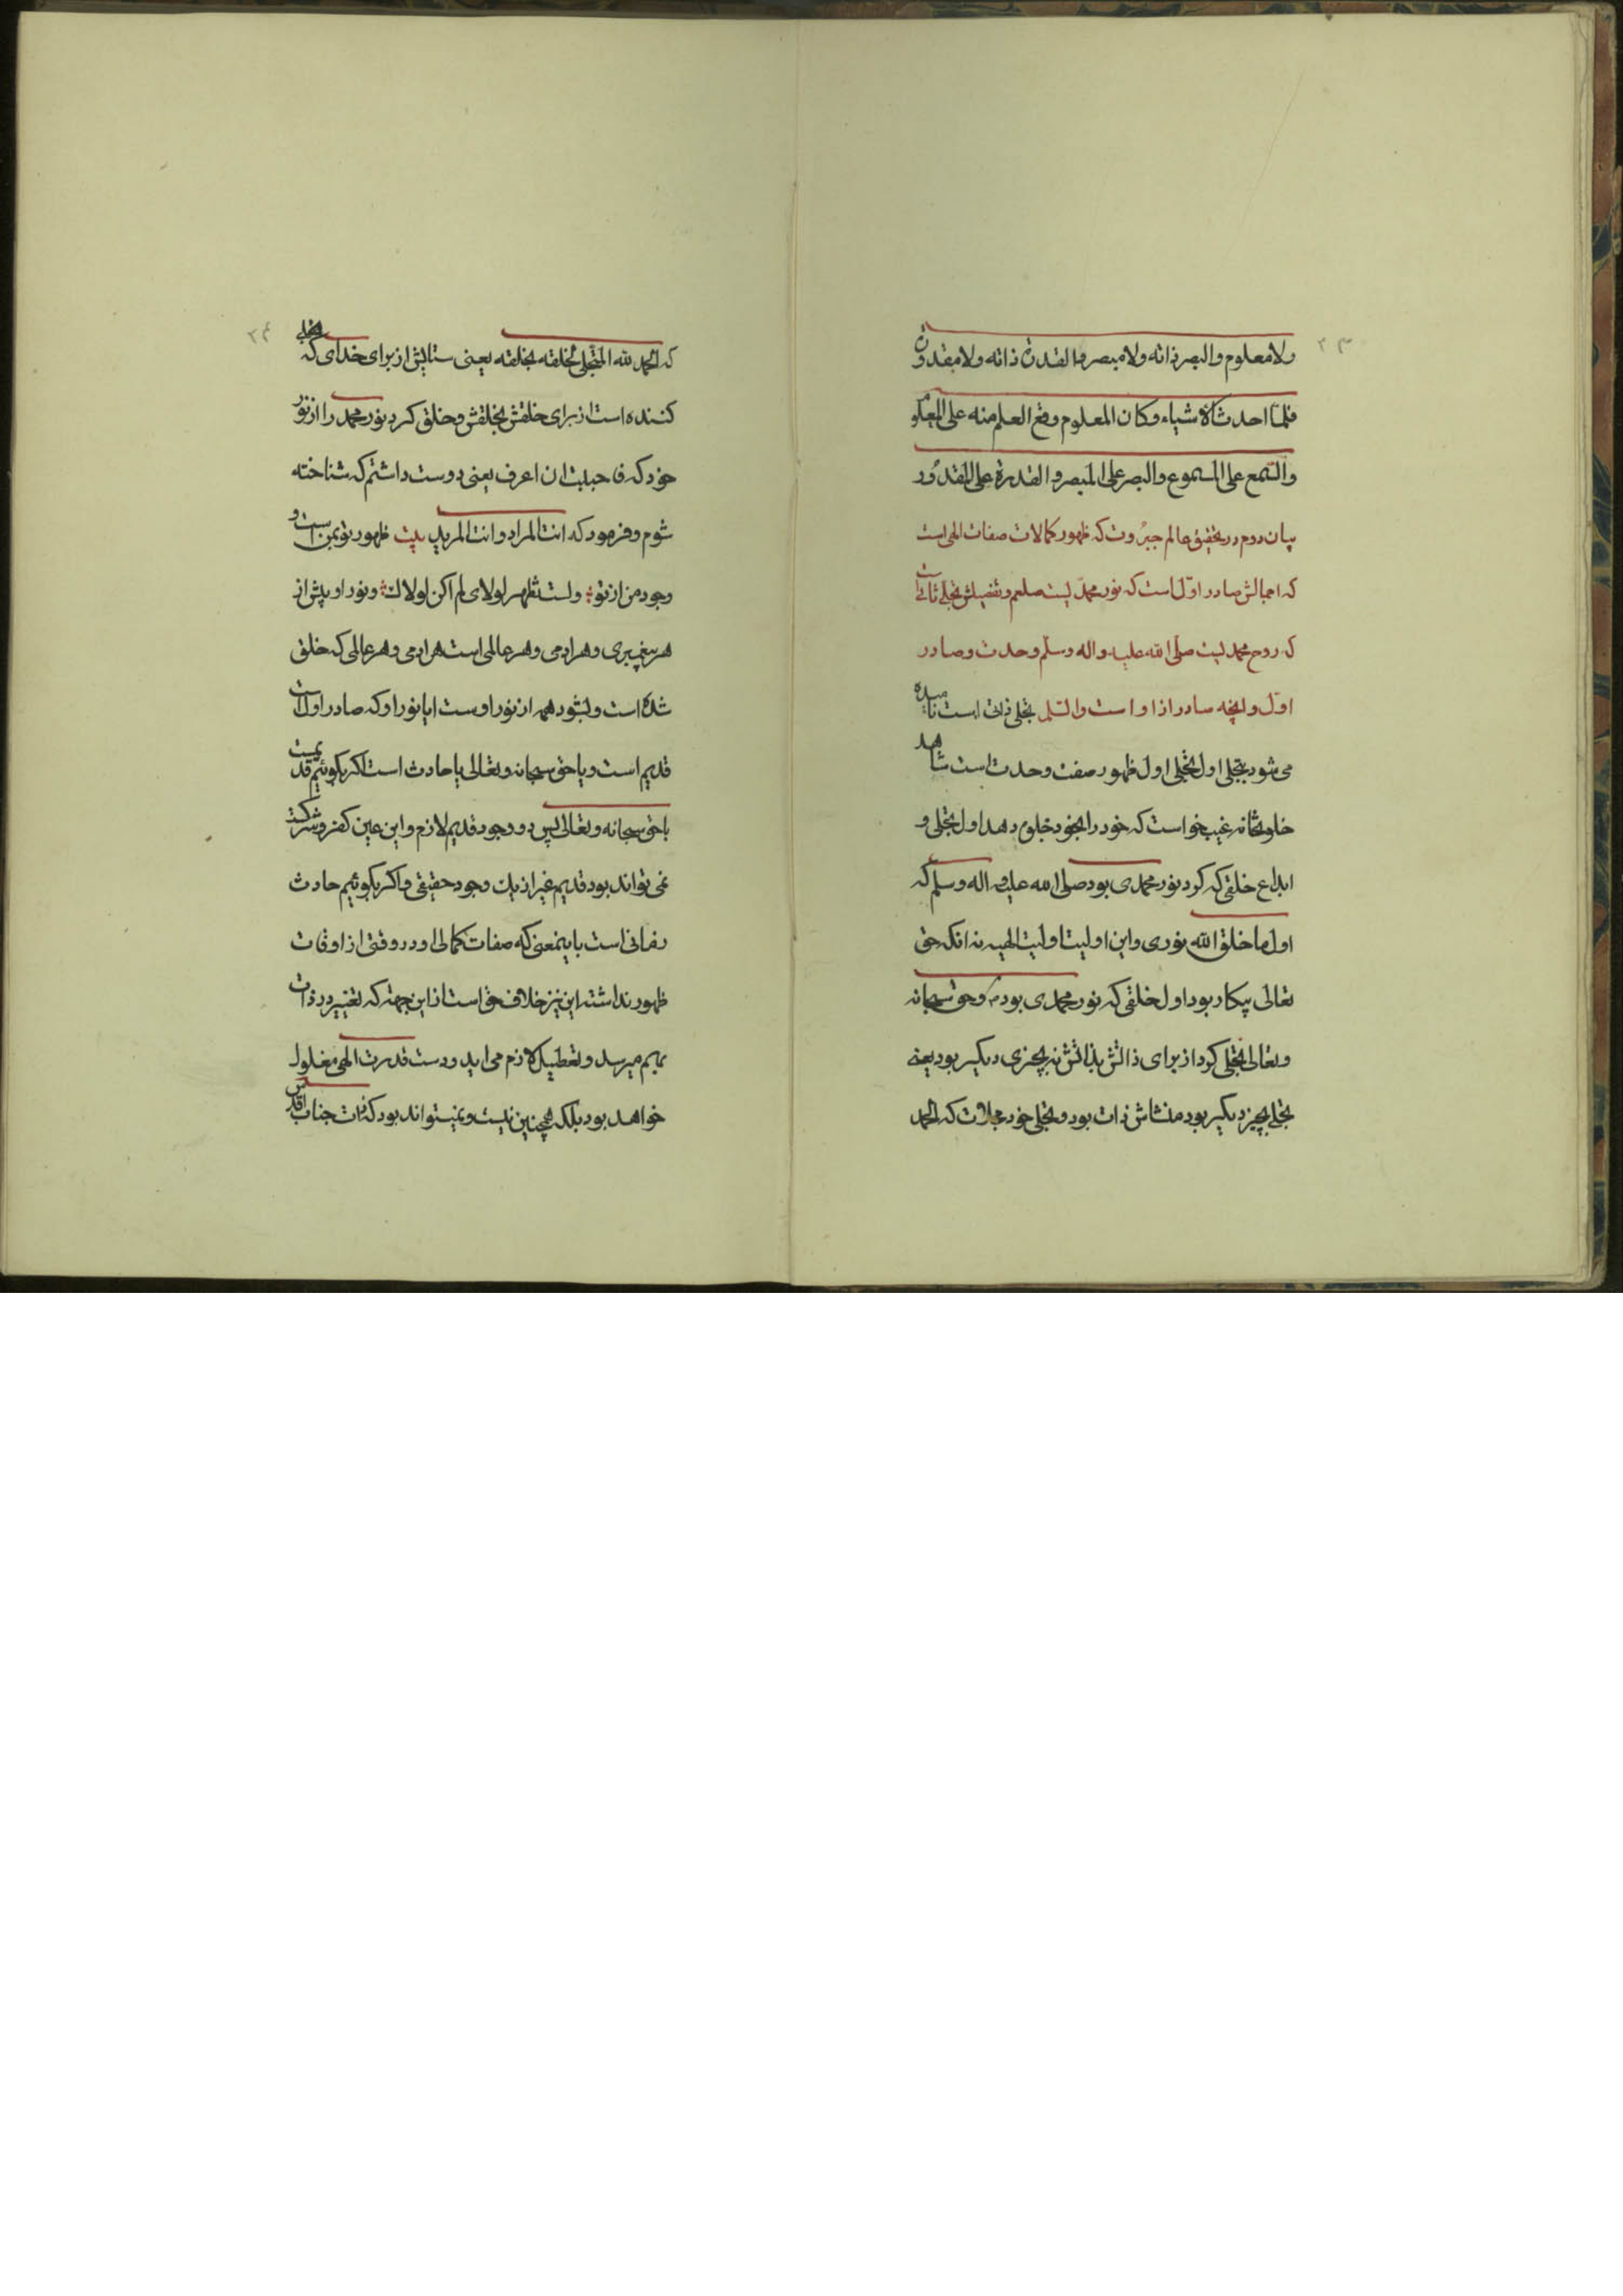 ٢٣
ولا معلوم والبصر ذاته ولا مبصر والقدرة ذاته ولا مقدور
فلمّا احدث الاشیاء وکان المعلوم وقع العلم منه علی المعلوم
والسّمع علی المسموع والبصر علی المبصر والقدرة علی المقدور
بیان دوم در تحقیق عالم جبروت که ظهور کمالات صفات الهی است
که اجمالش صادر اوّل است که نور محمدیست صلعم و تفصیلش تجلی ثانی است
که روح محمدیست صلی الله علیه واله وسلم وحدت و صادر
اوّل و آنچه صادر از او است والسّلم تجلی ذات است نامیده
می شود بتجلی اول تجلی اول ظهور صفت وحدت است شاهد
خلوتخانه غیب خواست که خود را بخود جلوه دهد اول تجلی و
ابداع خلقی که کرد نور محمدی بود صلی الله علیه واله وسلم که
اول ما خلق الله نوری و این اولیت اولیت الهیه نه انکه حق
تعالی بیکار بود اول خلقی که نور محمدی بود م و حق سبحانه
وتعالی تجلی کرد از برای ذاتش بذاتش نه بچیزی دیگیر بود یعنه
تجلی بچیز دیگیر بود منشاش ذات بود و تجلی خود که الحمد
٢٤
که الحمد لله المتجلی لخلقه بخلقه یعنی ستایش از برای خدای که تجلی
کننده است از برای خلقش بخلقش و خلق کرد نور محمد را از نور
خود که فاحببت ان اعرف یعنی دوست داشتم که شناخته
شوم و فرمود که انت المراد و انت المرید بیت ظهور تو بمن است و
وجود من از تو ولست تظهر لولای لم اکن لولاك و نور او پیش از
هر پیغمبری و هر ادمی و هر عالمی است هر ادمی و هر عالمی که خلق
شده است و بشود همه از نور اوست ایا نور او که صادر اول است
قدیم است و یا حق سبحانه وتعالی یا حادث است اکر بکوئیم قدیمست
با حق سبحانه وتعالی پس دو وجود قدیم لازم و این عین کفر و شرکست
نمی تواند بود قدیم غیر از یك وجود حقیقی و اکر بکوئیم حادث
زمانی است باینمعنی که صفات کمالی او در وقتی از اوقات
ظهور نداشته این نیز خلاف حق است از این جهته که تغییر در ذات
بهم میرسد و تعطیل لازم می اید و دست قدرت الهی مغلول
خواهد بود بلکه همچنین نیست و نمیتواند بود که ذات جناب اقدس